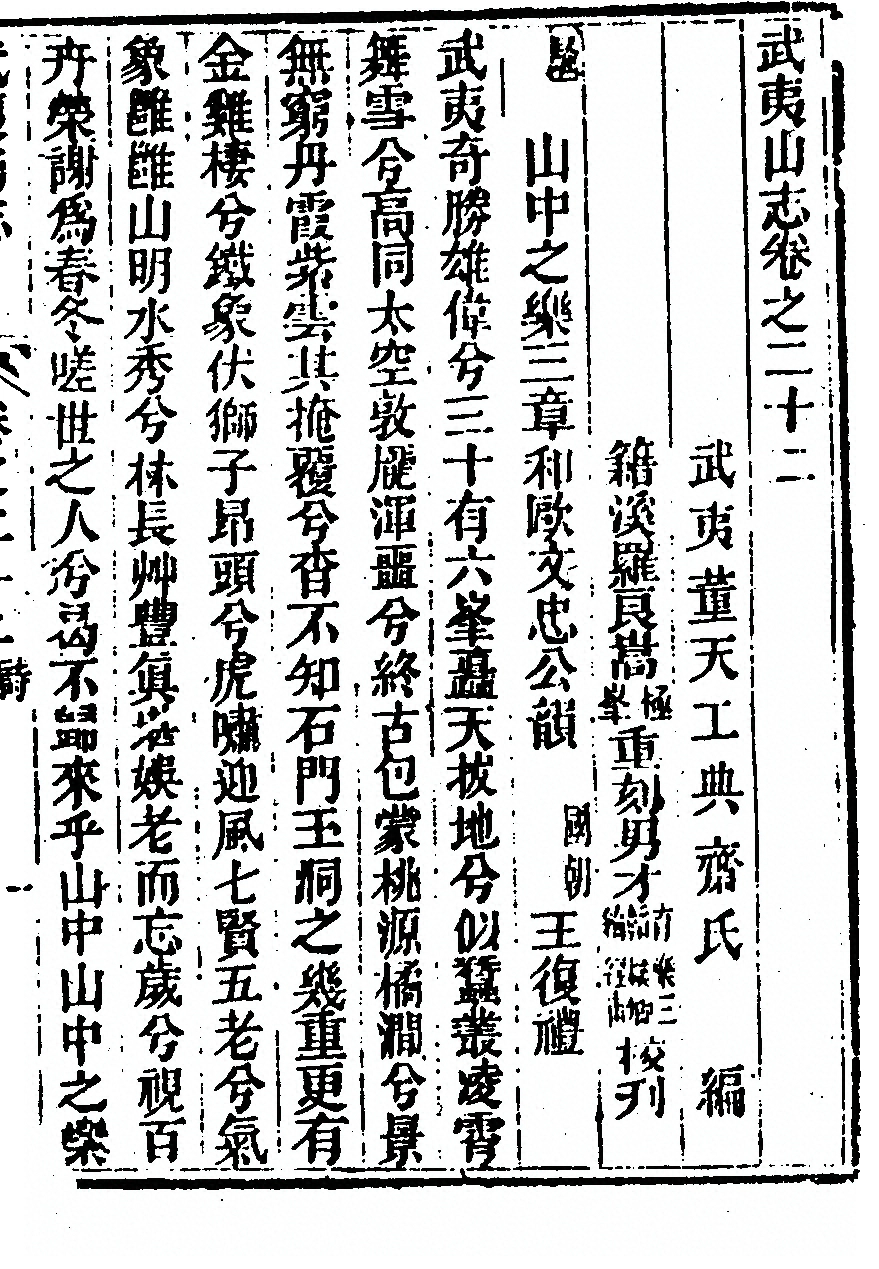 武夷山志卷之二十二
武夷董天工典齋氏　編
籍溪羅良嵩極峯重刻男才校刋
山中之樂三章和歐文忠公韻　國朝王復禮
武夷奇勝雄偉兮三十有六峯矗天拔地兮似蠶叢凌霄
舞雪兮高同太空敦龐渾噩兮終古包蒙桃源橘澗兮景
無窮丹霞紫雲其掩覆兮杳不知石門玉洞之幾重更有
金雞棲兮鐵象伏獅子昂頭兮虎嘯迎風七賢五老兮氣
象雝雝山明水秀兮林長艸豐眞堪娛老而忘歲兮視百
卉榮謝爲春冬嗟世之人兮曷不歸來乎山中山中之樂